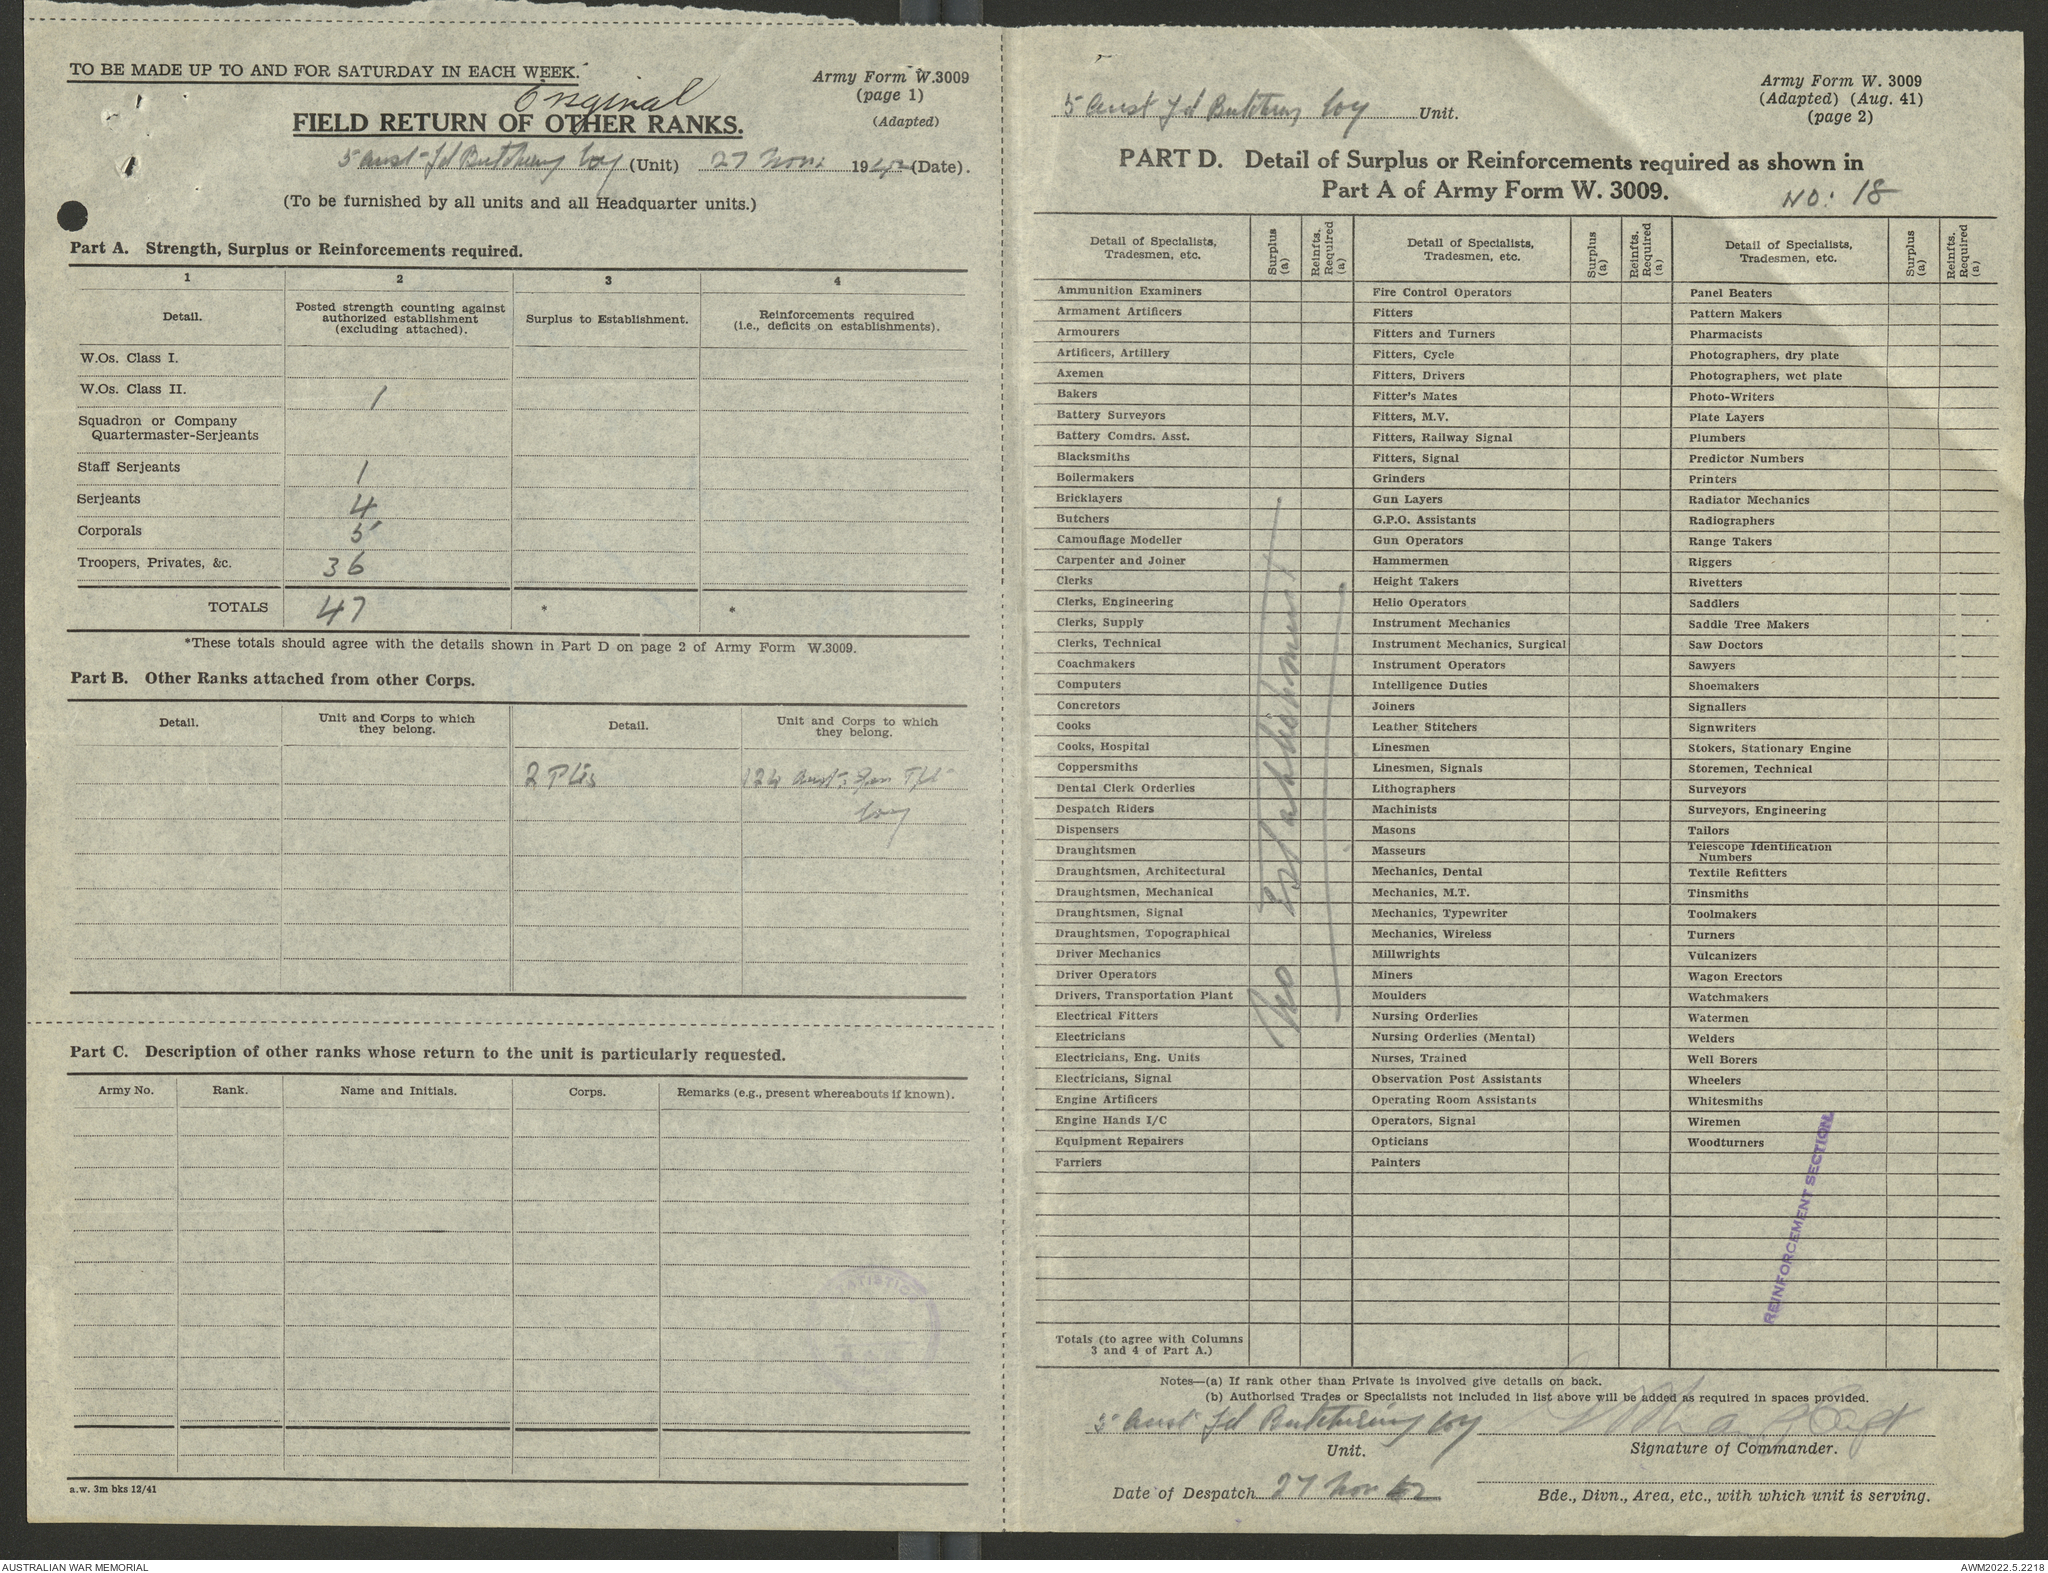 TO BE MADE UP TO AND FOR SATURDAY IN EACH WEEK.
Army Form W.3009
(page 1)
(Adapted)
Original
FIELD RETURN OF OTHER RANKS.
5 Aust Fd Butchery Coy (Unit) 27 Nov. 1942 (Date).
(To be furnished by all units and all Headquarter units.)
Part A. Strength, Surplus or Reinforcements required.
1 2 3 4
Detail. Posted strength counting against authorized establishment (excluding attached). Surplus to Establishment. Reinforcements required (i.e., deficits on establishments).
W.Os. Class I.
W.Os. Class II. 1
Squadron or Company
Quartermaster-Serjeants
Staff Serjeants 1
Serjeants 4
Corporals 5
Troopers, Privates, &c. 36
TOTALS 47 * *
*These totals should agree with the details shown in Part D on page 2 of Army Form W.3009.
Part B. Other Ranks attached from other Corps.
Detail. Unit and Corps to which they belong. Detail. Unit and Corps to which they belong.
2 Ptes 124 Aust. Gen Tpt
Coy
Part C. Description of other ranks whose return to the unit is particularly requested.
Army No. Rank. Name and Initials. Corps. Remarks (e.g., present whereabouts if known).
STATISTICS
a.w. 3m bks 12/41
5 Aust Fd Butchery Coy Unit.
Army Form W. 3009
(Adapted) (Aug. 41)
(page 2)
PART D. Detail of Surplus or Reinforcements required as shown in
Part A of Army Form W. 3009.
NO: 18
Detail of Specialists, Tradesmen, etc. Surplus (a) Reinfts. Required (a) Detail of Specialists, Tradesmen, etc. Surplus (a) Reinfts. Required (a) Detail of Specialists, Tradesmen, etc. Surplus (a) Reinfts. Required (a)
Ammunition Examiners Fire Control Operators Panel Beaters
Armament Artificers Fitters Pattern Makers
Armourers Fitters and Turners Pharmacists
Artificers, Artillery Fitters, Cycle Photographers, dry plate
Axemen Fitters, Drivers Photographers, wet plate
Bakers Fitter's Mates Photo-Writers
Battery Surveyors Fitters, M.V. Plate Layers
Battery Comdrs. Asst. Fitters, Railway Signal Plumbers
Blacksmiths Fitters, Signal Predictor Numbers
Boilermakers Grinders Printers
Bricklayers Gun Layers Radiator Mechanics
Butchers G.P.O. Assistants Radiographers
Camouflage Modeller Gun Operators Range Takers
Carpenter and Joiner Hammermen Riggers
Clerks Height Takers Rivetters
Clerks, Engineering Helio Operators Saddlers
Clerks, Supply Instrument Mechanics Saddle Tree Makers
Clerks, Technical Instrument Mechanics, Surgical Saw Doctors
Coachmakers Instrument Operators Sawyers
Computers Intelligence Duties Shoemakers
Concretors Joiners Signallers
Cooks Leather Stitchers Signwriters
Cooks, Hospital Linesmen Stokers, Stationary Engine
Coppersmiths Linesmen, Signals Storemen, Technical
Dental Clerk Orderlies Lithographers Surveyors
Despatch Riders Machinists Surveyors, Engineering
Dispensers Masons Tailors
Draughtsmen Masseurs Telescope Identification Numbers
Draughtsmen, Architectural Mechanics, Dental Textile Refitters
Draughtsmen, Mechanical Mechanics, M.T. Tinsmiths
Draughtsmen, Signal Mechanics, Typewriter Toolmakers
Draughtsmen, Topographical Mechanics, Wireless Turners
Driver Mechanics Millwrights Vulcanizers
Driver Operators Miners Wagon Erectors
Drivers, Transportation Plant Moulders Watchmakers
Electrical Fitters Nursing Orderlies Watermen
Electricians Nursing Orderlies (Mental) Welders
Electricians, Eng. Units Nurses, Trained Well Borers
Electricians, Signal Observation Post Assistants Wheelers
Engine Artificers Operating Room Assistants Whitesmiths
Engine Hands I/C Operators, Signal Wiremen
Equipment Repairers Opticians Woodturners
Farriers Painters
No Establishment
REINFORCEMENT SECTION
Totals (to agree with Columns
3 and 4 of Part A.)
Notes—(a) If rank other than Private is involved give details on back.
(b) Authorised Trades or Specialists not included in list above will be added as required in spaces provided.
5 Aust Fd Butchering Coy
Unit.
Capt
Signature of Commander.
Date of Despatch 27 Nov 42
Bde., Divn., Area, etc., with which unit is serving.
AUSTRALIAN WAR MEMORIAL
AWM2022.5.2218